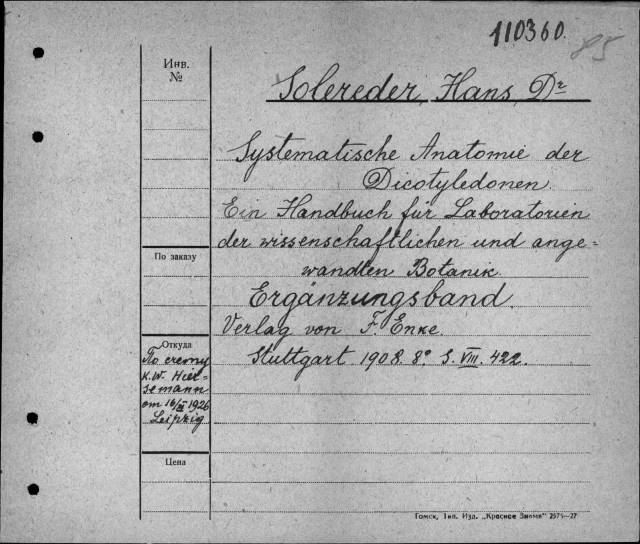 110360.
85
Инв.
№
Solereder, Hans, Dr
Systematische Anatomie der
Dicotyledonen.
Ein Handbuch für Laboratorien
der wissenschaftlichen und ange=
wandten Botanik
Ergänzungsband.
Verlag von F. Enke.
Stuttgart 1908. 8° S. VIII. 422.
По заказу
Откуда
По счету
K.W. Hier-
semann
от 16/II 1926
Leipzig
Цена
Томск, Тип. Изд. „Красное Знамя" 2571—27